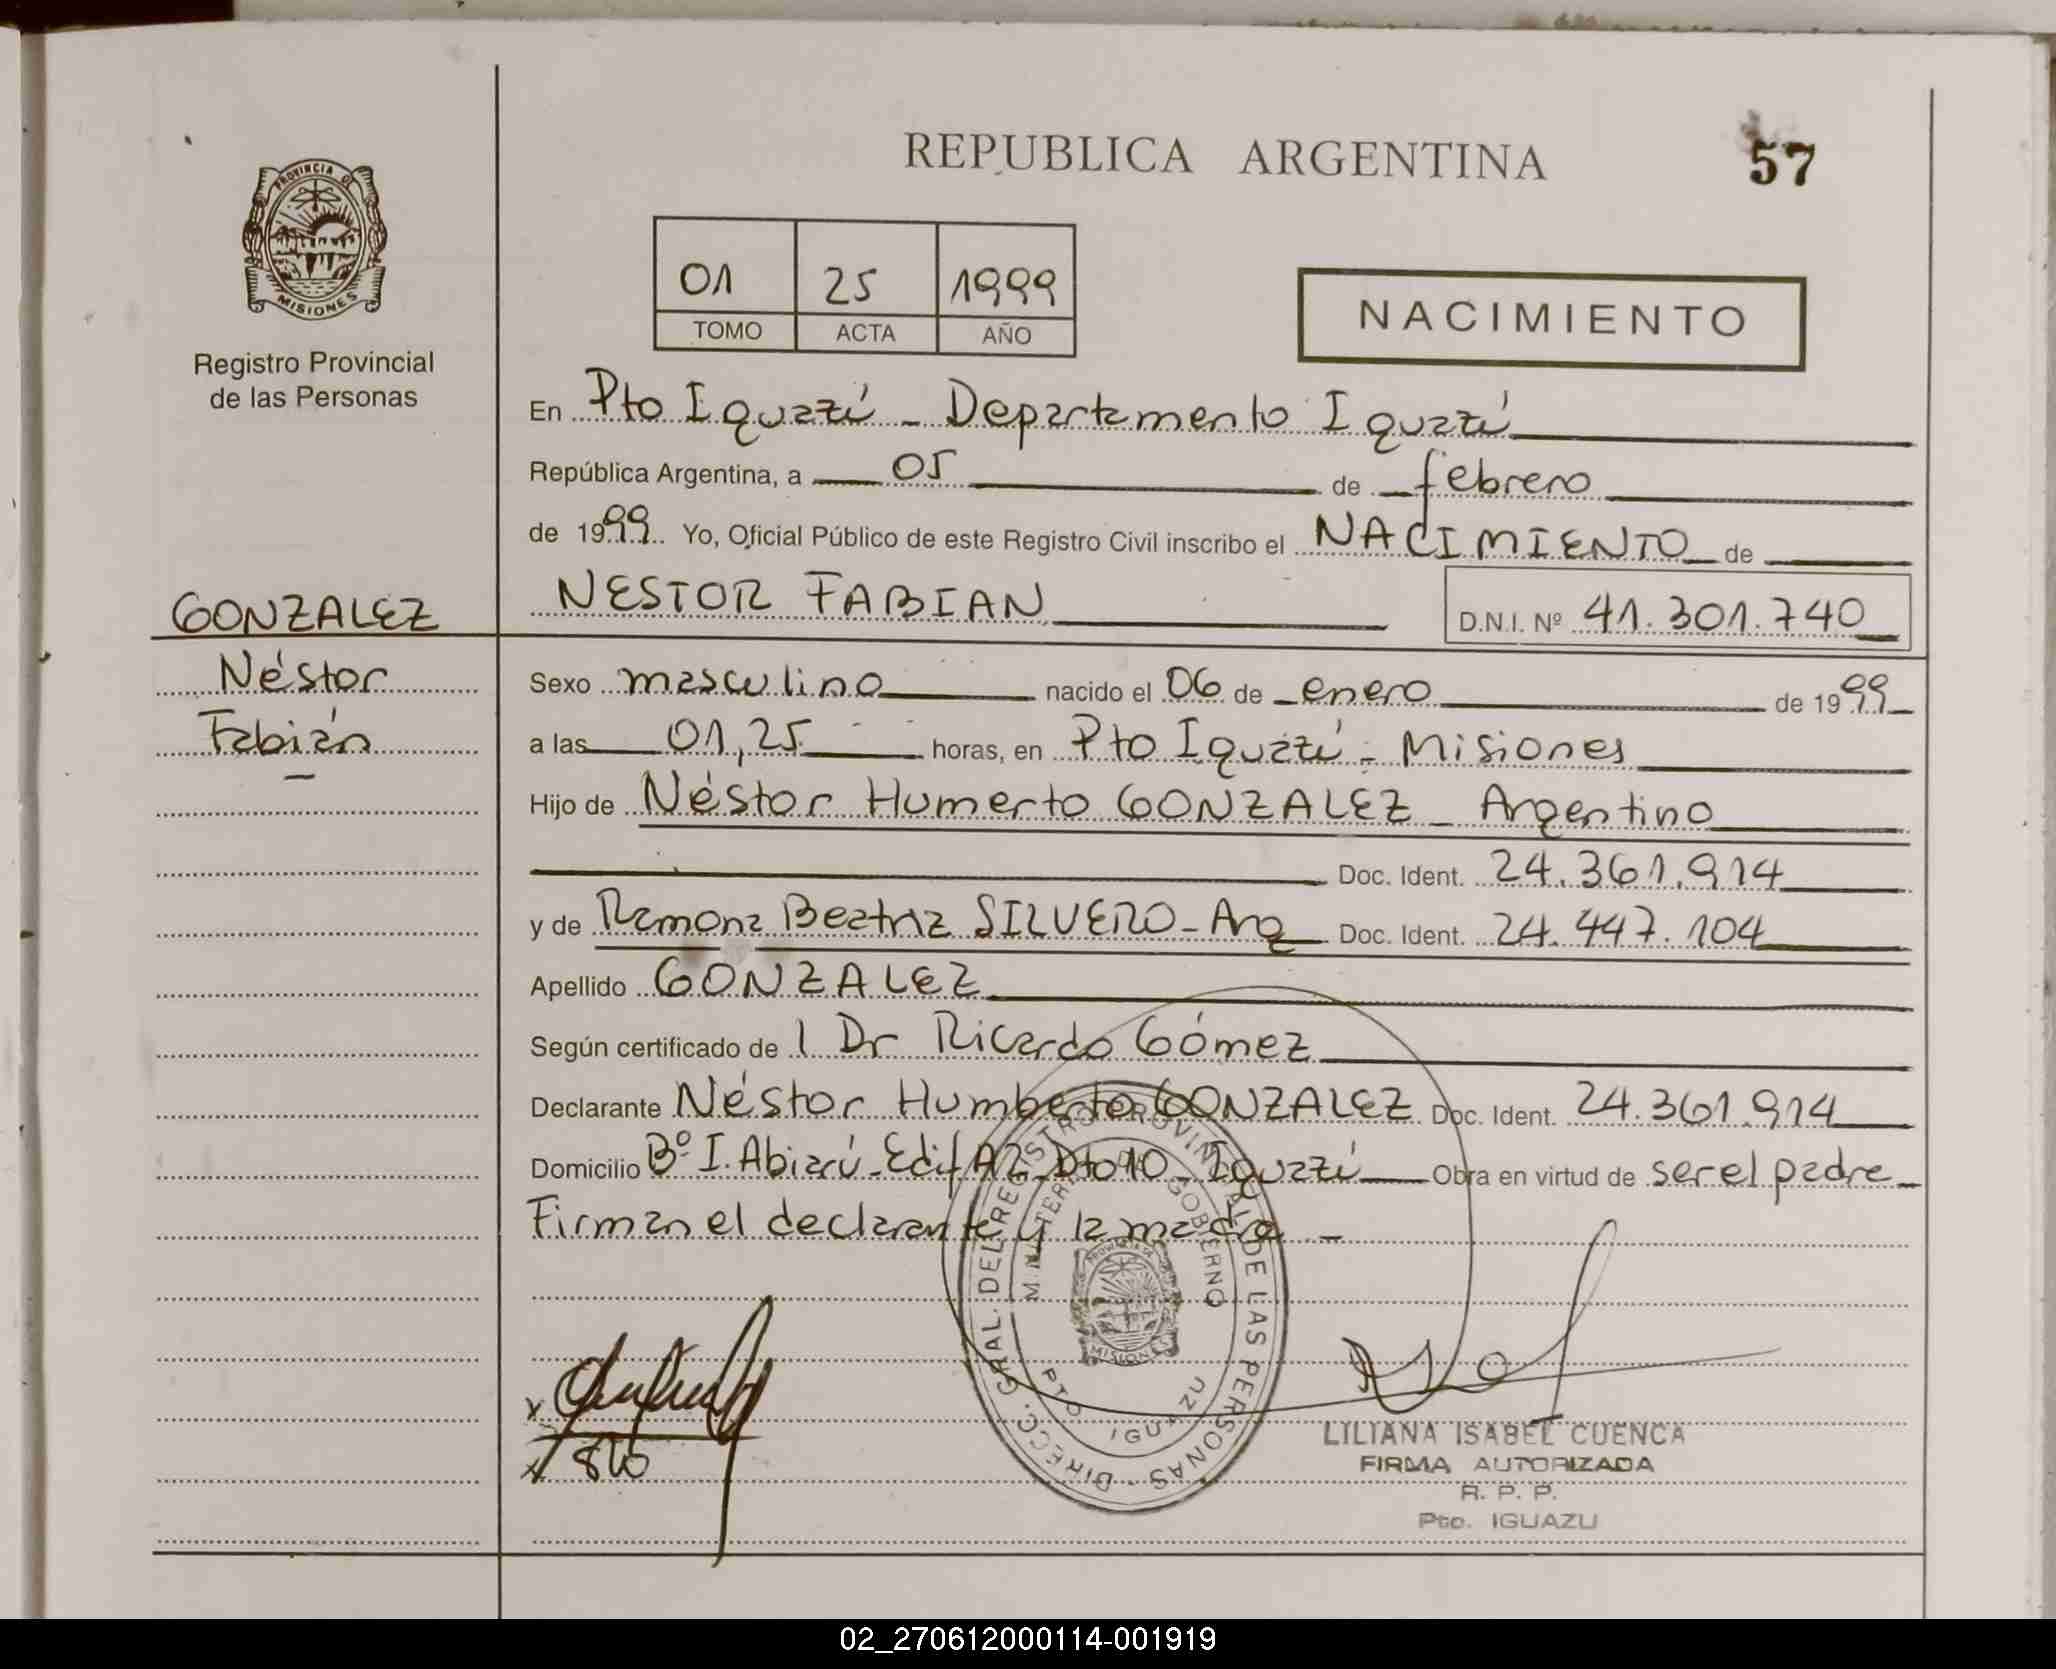 REPUBLICA ARGENTINA
57
PROVINCIA DE
MISIONES
Registro Provincial
de las Personas
01 25 1999
TOMO ACTA AÑO
NACIMIENTO
En Pto Iguazú - Departamento Iguazú
República Argentina, a 05 de febrero
de 1999. Yo, Oficial Público de este Registro Civil inscribo el NACIMIENTO de
GONZALEZ
NESTOR FABIAN
D.N.I. Nº 41.301.740
Néstor
Fabián
Sexo masculino nacido el 06 de enero de 1999
a las 01,25 horas, en Pto Iguazú - Misiones
Hijo de Néstor Humerto GONZALEZ - Argentino
Doc. Ident. 24.361.914
y de Ramona Beatriz SILVERO - Arg Doc. Ident. 24.447.104
Apellido GONZALEZ
Según certificado de l Dr Ricardo Gómez
Declarante Néstor Humberto GONZALEZ Doc. Ident. 24.361.914
Domicilio Bº I. Abiarú - Edif A2 - Dto 10 - Iguazú Obra en virtud de ser el padre
Firman el declarante y la madre -
DIRECC. GRAL. DEL REGISTRO PROVINCIAL DE LAS PERSONAS
MINISTERIO DE GOBIERNO
MISIONES
PTO IGUAZU
LILIANA ISABEL CUENCA
FIRMA AUTORIZADA
R. P. P.
Pto. IGUAZU
02_270612000114-001919